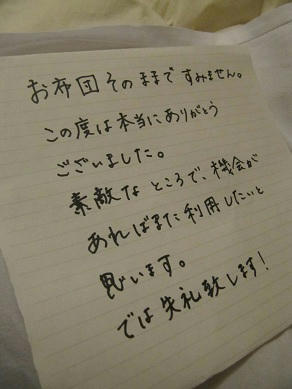 お布団そのままですみません。
この度は本当にありがとう
ございました。
素敵なところで、機会が
あればまた利用したいと
思います。
では失礼致します！